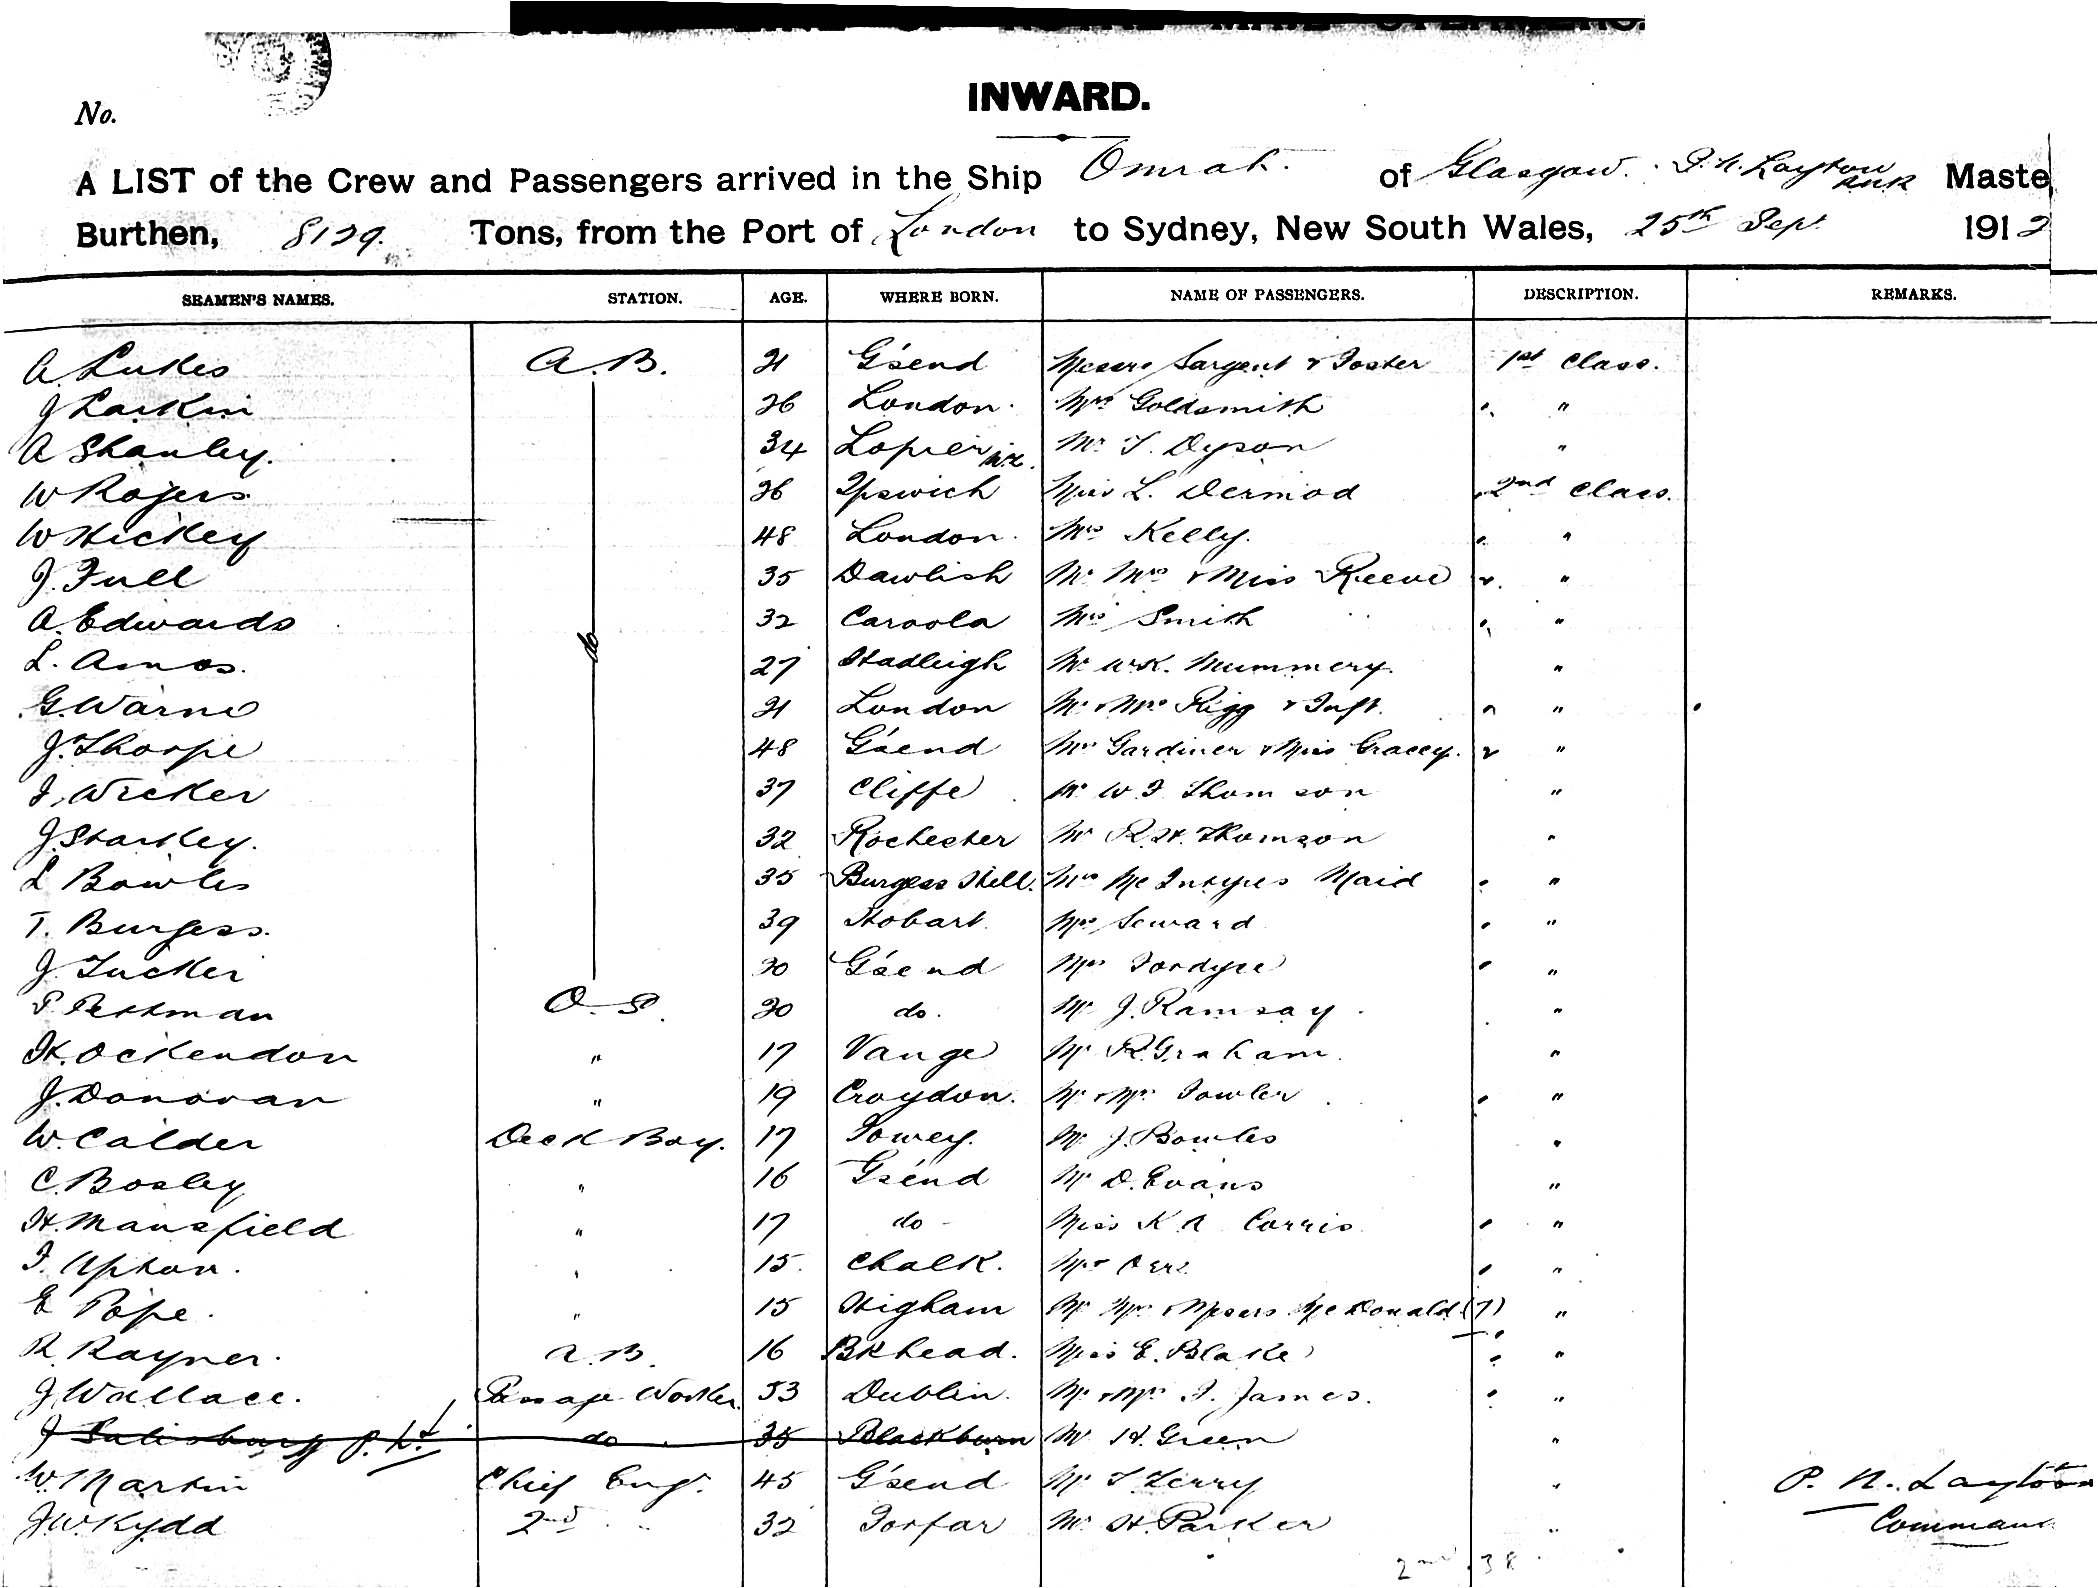 INWARD.
No.
A LIST of the Crew and Passengers arrived in the Ship Omrah. of Glasgow. Layton RNR Maste
Burthen, 8129. Tons, from the Port of London to Sydney, New South Wales, 25th Sep. 1912
SEAMEN'S NAMES. STATION. AGE. WHERE BORN. NAME OF PASSENGERS. DESCRIPTION. REMARKS.
A. Lukes A.B. 21 G'send Messrs Sargent & Foster 1st Class.
J Larkin 26 London. Mrs Goldsmith " "
A Shanley. 34 Mr T. Dyson "
W Rogers 26 Ipswich Miss L. Dermod 2nd Class.
W Hickey 48 London. Mrs Kelly. " "
J. Full 35 Dawlish Mr Mrs & Miss Reeve " "
A. Edwards do 32 Caroola Mrs Smith " "
L. Amos. 27 Hadleigh Mr W.K. Mummery. "
G. Warne 21 London Mr & Mrs Rigg & Inft. " "
J. Thorpe 48 G'send Mrs Gardiner & Miss Gracey. "
F. Wicker 37 Cliffe Mr W. F. Thomson "
J. Starkey. 32 Rochester Mr R.H. Thomson "
L Bowles 35 Burgess Hill. Mrs McIntyres Maid "
T. Burgess. 39 Hobart. Mrs Seward "
J. Tucker 20 G'send Mrs Fordyce "
P. Perkman O.S. 20 do. Mr J. Ramsay. "
H. Ockendon " 17 Vange Mr R. Graham. "
J. Donovan " 19 Croydon. Mr & Mrs Fowler "
W. Calder Deck Boy. 17 Fowey. Mr J. Bowles "
C. Bosley " 16 G'send Mr D. Evans "
H. Mansfield " 17 do Miss K A Corris "
F. Upton. " 15. Chalk. "
E Pope. " 15 Higham Mr Mrs & Messrs McDonald (7) "
R. Rayner. A.B. 16 B'khead. Miss E. Blake "
J. Wallace. Passage Worker. 53 Dublin. Mr & Mrs F. James. "
J Salisbury do 35 Blackburn Mr H. Green "
W. Martin Chief Engr. 45 G'send Mr T Terry "
J.W. Kydd 2nd " 32 Forfar Mr H. Parker "
P. N. Layton
Comman
2nd 38